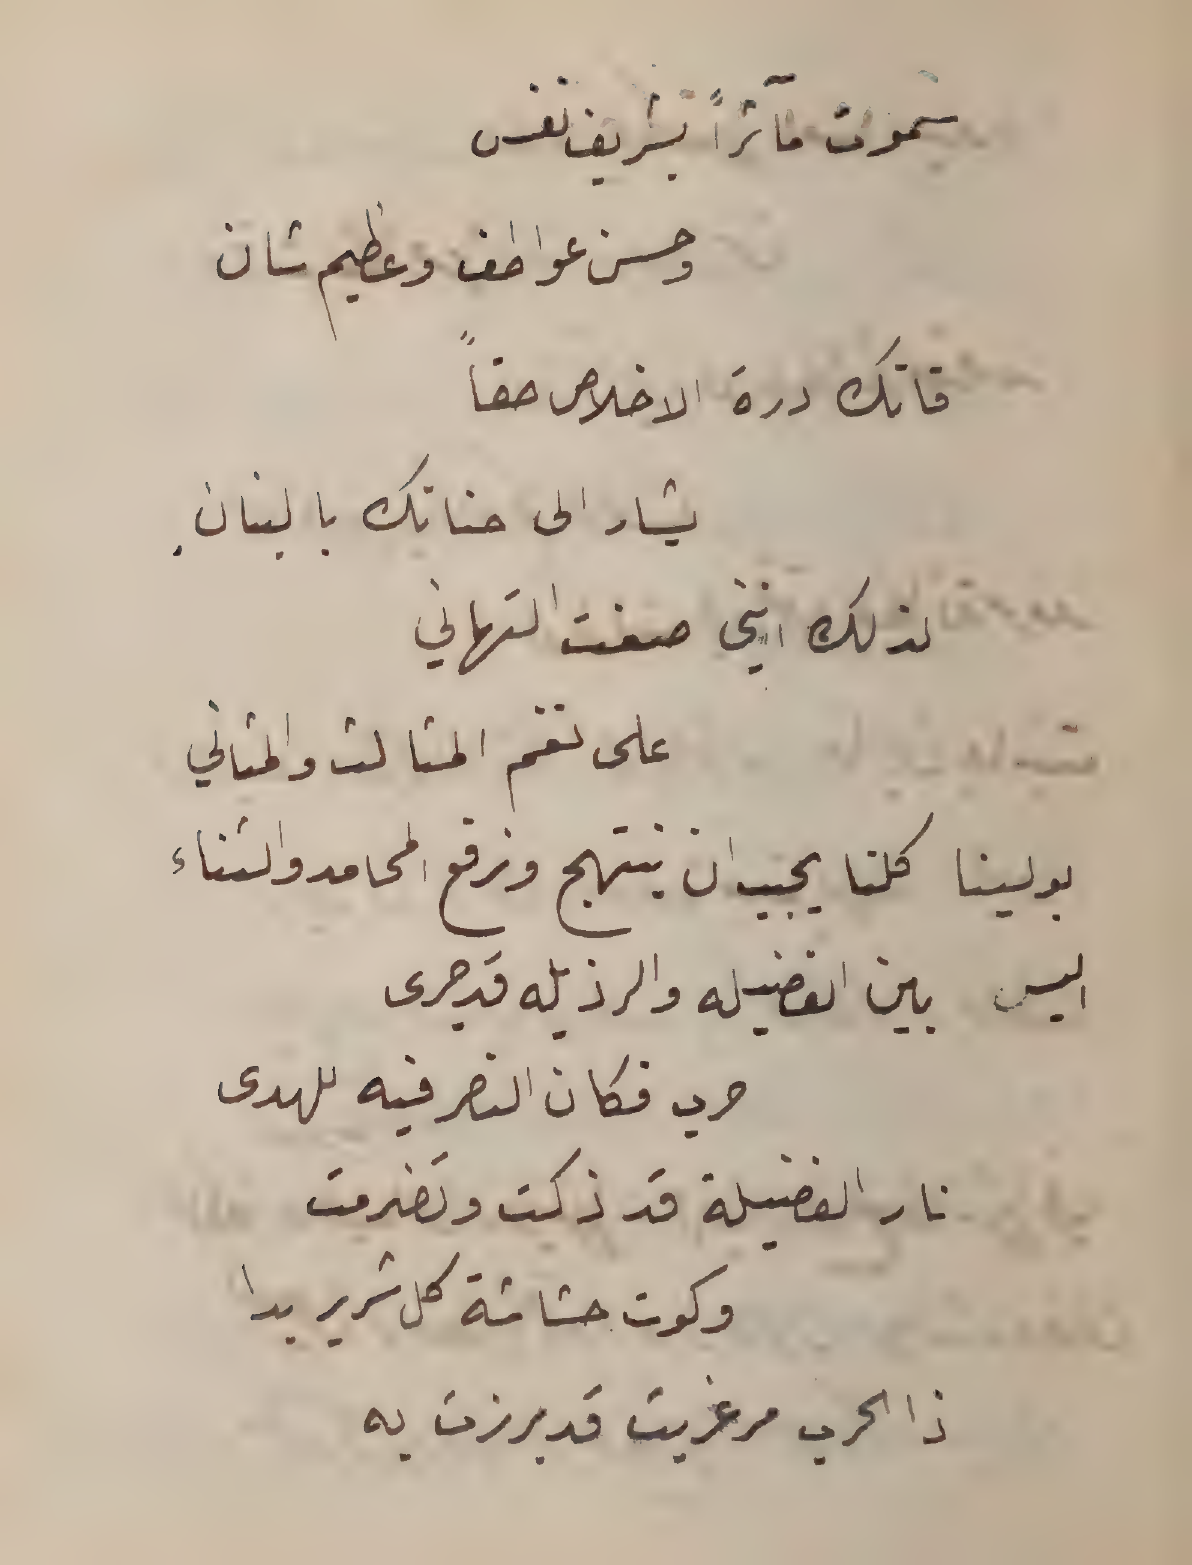 سموت مآثراً بشريف نفس
وحسن عواطف وعظيم شان
فانك درة الاخلاص حقاً
يشار الى حنانك بالبنان.
لذلك انني صغت التهاني
على نغم المثالث والمثاني
بولينا كلنا يجب ان ينتهج ونرفع المحامد والثناء
اليس بين الفضيله والرذيله قد جرى
حرب فكان النصر فيه للهدى
نار الفضيلة قد ذكت وتضرمت
وكوت حشاشة كل شرير بدا
ذا الحرب مرغريت قد برزت به